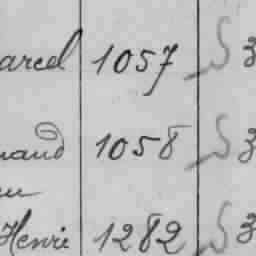 arcel 1057 S 3
naud 1058 S 3
Henri 1282 S 3